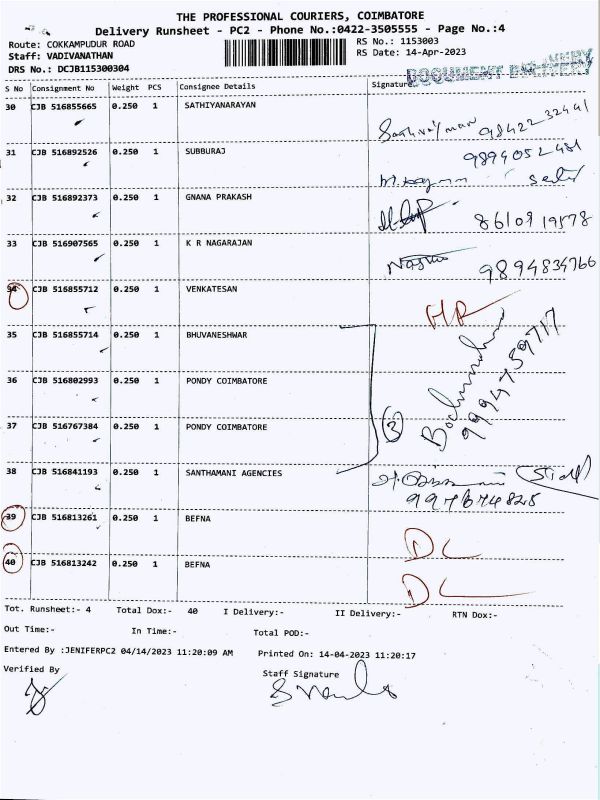 THE PROFESSIONAL COURIERS, COIMBATORE
Delivery Runsheet - PC2 - Phone No.:0422-3505555 - Page No.:4
Route: COKKAMPUDUR ROAD RS No.: 1153003
Staff: VADIVANATHAN RS Date: 14-Apr-2023
DRS No.: DCJB115300304
DOCUMENT DELIVERY
S No Consignment No Weight PCS Consignee Details Signature
30 CJB 516855665 0.250 1 SATHIYANARAYAN
98422 32441
31 CJB 516892526 0.250 1 SUBBURAJ 9894052481
32 CJB 516892373 0.250 1 GNANA PRAKASH 8610919578
33 CJB 516907565 0.250 1 K R NAGARAJAN
9894834766
34 CJB 516855712 0.250 1 VENKATESAN
35 CJB 516855714 0.250 1 BHUVANESHWAR
36 CJB 516802993 0.250 1 PONDY COIMBATORE
9994759717
37 CJB 516767384 0.250 1 PONDY COIMBATORE
3
38 CJB 516841193 0.250 1 SANTHAMANI AGENCIES
39 CJB 516813261 0.250 1 BEFNA
DL
40 CJB 516813242 0.250 1 BEFNA
DL
Tot. Runsheet:- 4 Total Dox:- 40 I Delivery:- II Delivery:- RTN Dox:-
Out Time:- In Time:- Total POD:-
Entered By :JENIFERPC2 04/14/2023 11:20:09 AM Printed On: 14-04-2023 11:20:17
Verified By Staff Signature